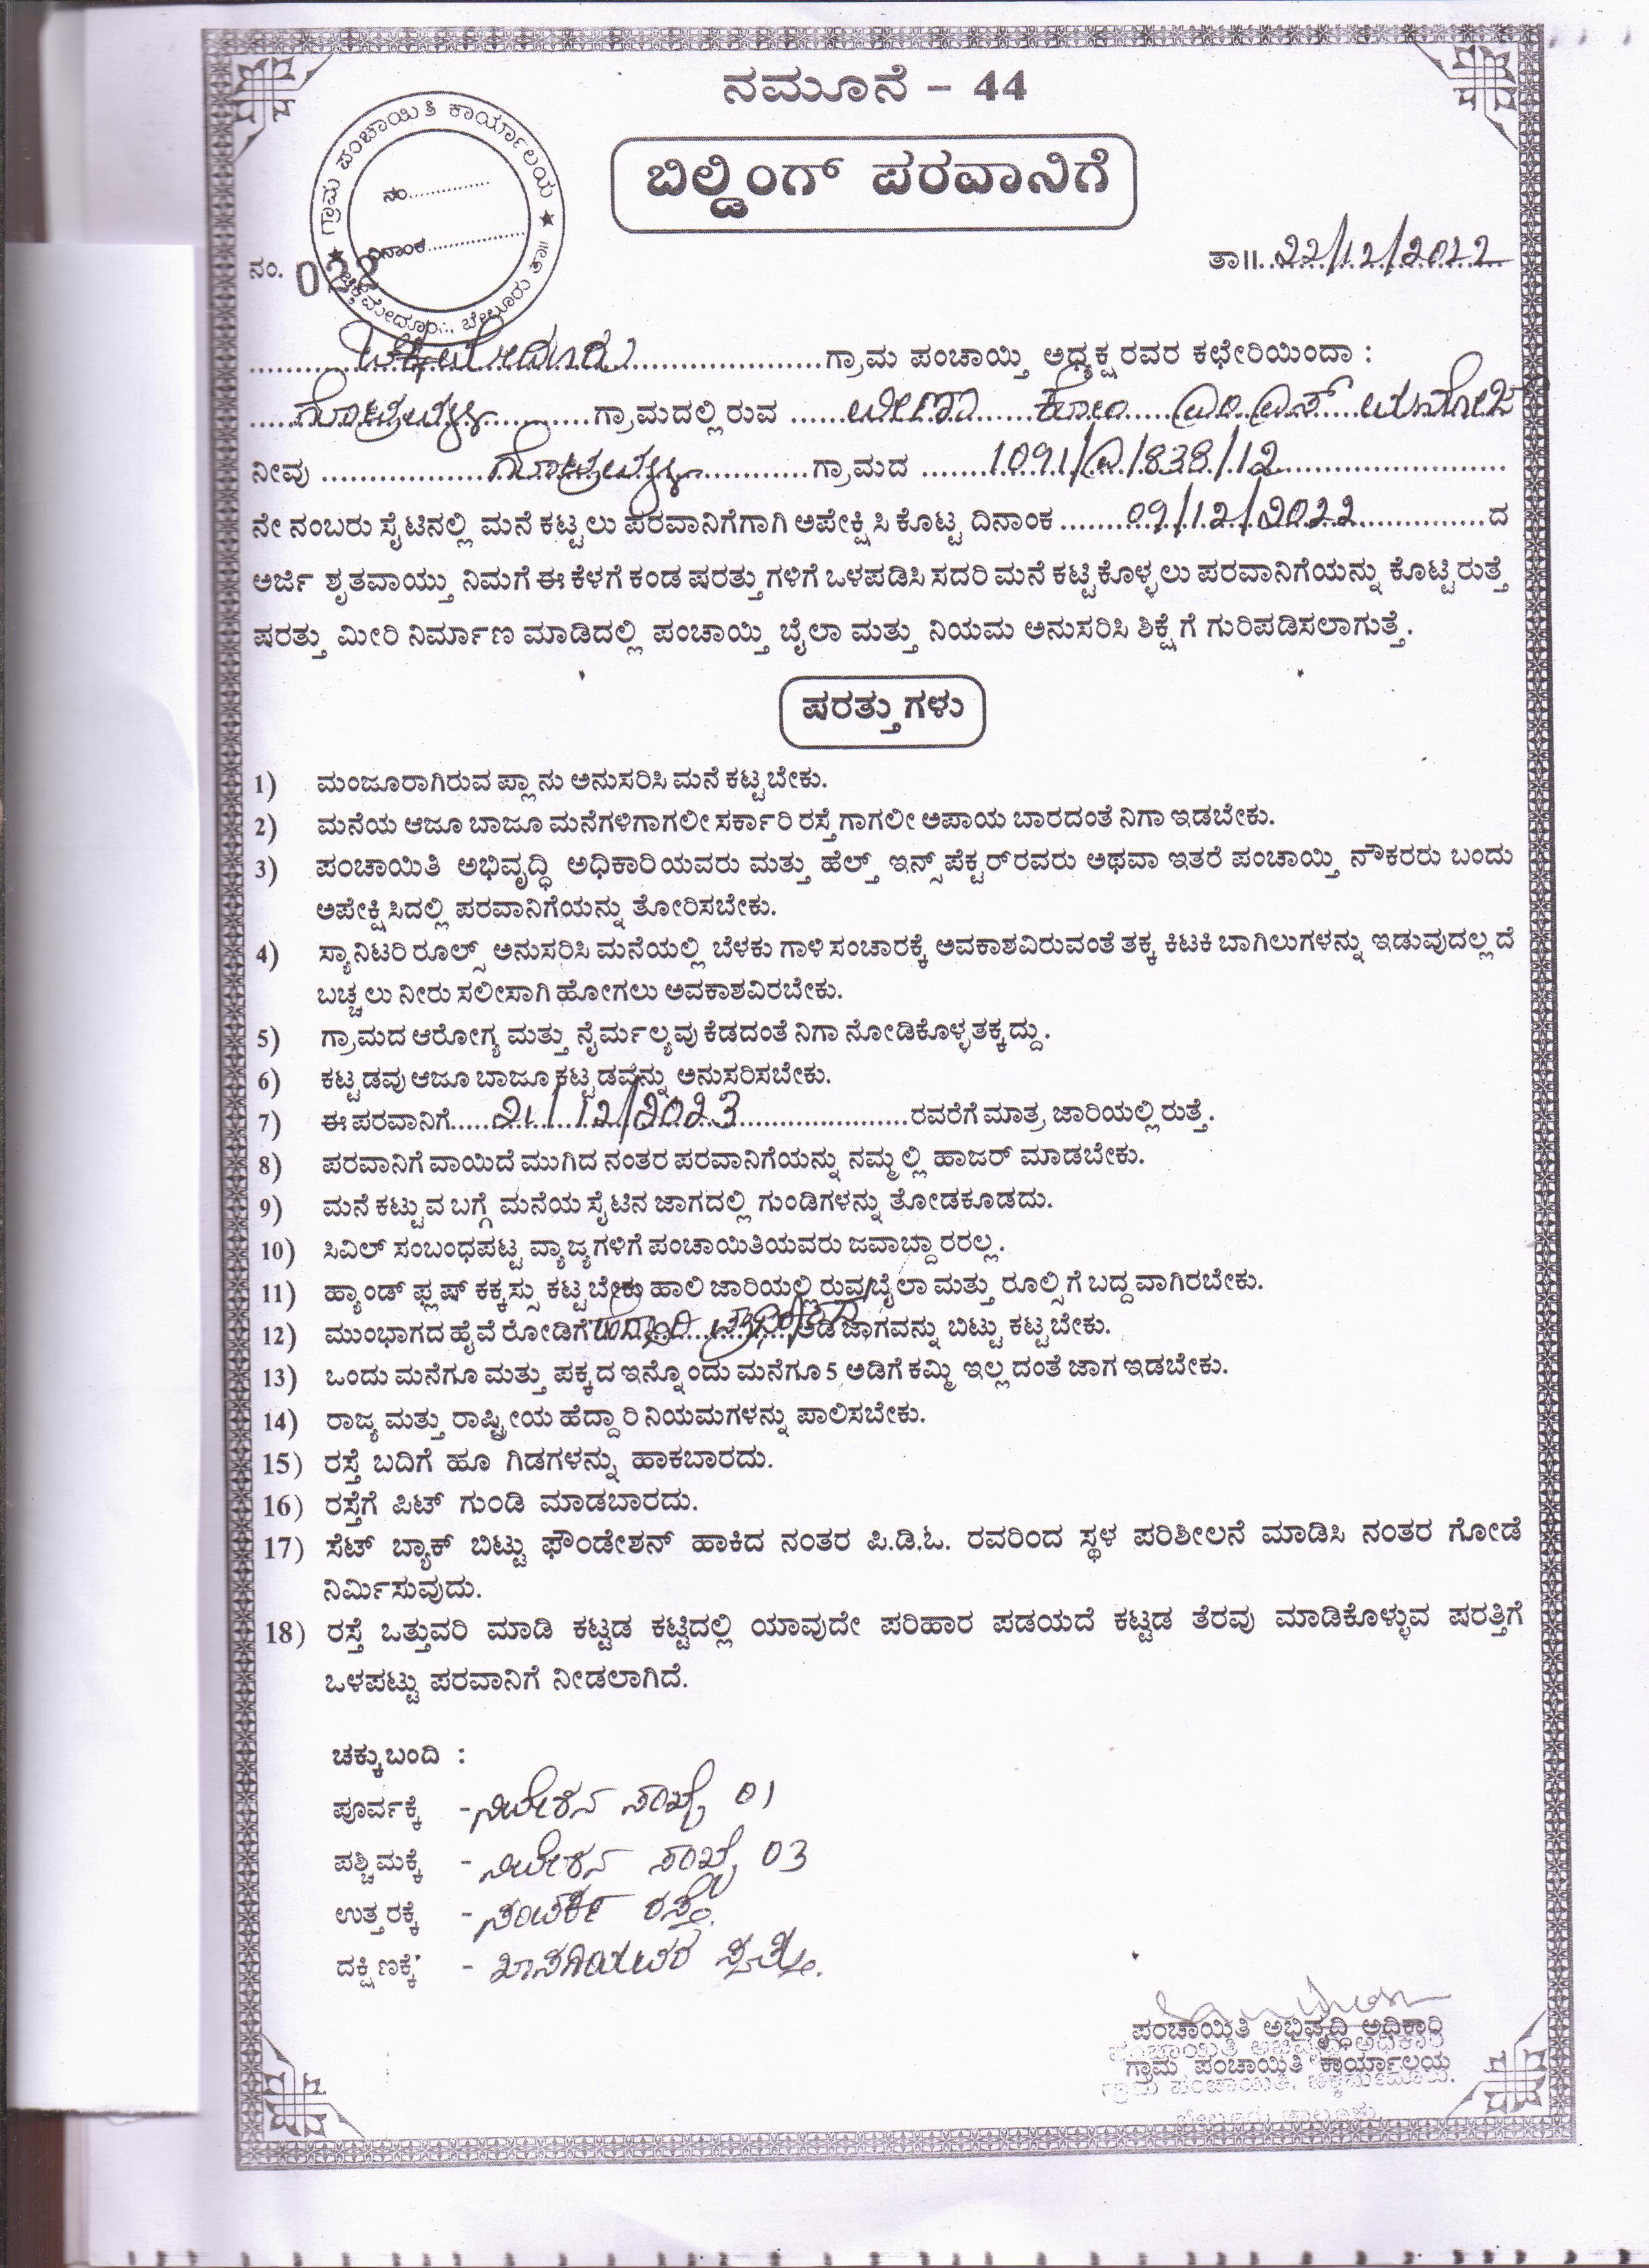 ನಮೂನೆ – 44
ಗ್ರಾಮ ಪಂಚಾಯಿತಿ ಕಾರ್ಯಾಲಯ
ನಂ..............
ದಿನಾಂಕ..................
ಬಿಲ್ಡಿಂಗ್ ಪರವಾನಿಗೆ
ನಂ. 022
ತಾ॥ 22/12/2022
ಚಿಕ್ಕಮೇದೂರು ಗ್ರಾಮ ಪಂಚಾಯ್ತಿ ಅಧ್ಯಕ್ಷರವರ ಕಛೇರಿಯಿಂದಾ :
ಗ್ರಾಮದಲ್ಲಿರುವ ವೀಣಾ ಕೋಂ ಎಂ ಎಸ್
ನೀವು ಗ್ರಾಮದ 1091/ಎ/838/12
ನೇ ನಂಬರು ಸೈಟಿನಲ್ಲಿ ಮನೆ ಕಟ್ಟಲು ಪರವಾನಿಗೆಗಾಗಿ ಅಪೇಕ್ಷಿಸಿ ಕೊಟ್ಟ ದಿನಾಂಕ 09/12/2022 ದ
ಅರ್ಜಿ ಶೃತವಾಯ್ತು ನಿಮಗೆ ಈ ಕೆಳಗೆ ಕಂಡ ಷರತ್ತುಗಳಿಗೆ ಒಳಪಡಿಸಿ ಸದರಿ ಮನೆ ಕಟ್ಟಿಕೊಳ್ಳಲು ಪರವಾನಿಗೆಯನ್ನು ಕೊಟ್ಟಿರುತ್ತೆ
ಷರತ್ತು ಮೀರಿ ನಿರ್ಮಾಣ ಮಾಡಿದಲ್ಲಿ ಪಂಚಾಯ್ತಿ ಬೈಲಾ ಮತ್ತು ನಿಯಮ ಅನುಸರಿಸಿ ಶಿಕ್ಷೆಗೆ ಗುರಿಪಡಿಸಲಾಗುತ್ತೆ.
ಷರತ್ತುಗಳು
1) ಮಂಜೂರಾಗಿರುವ ಪ್ಲಾನು ಅನುಸರಿಸಿ ಮನೆ ಕಟ್ಟಬೇಕು.
2) ಮನೆಯ ಆಜೂ ಬಾಜೂ ಮನೆಗಳಿಗಾಗಲೀ ಸರ್ಕಾರಿ ರಸ್ತೆಗಾಗಲೀ ಅಪಾಯ ಬಾರದಂತೆ ನಿಗಾ ಇಡಬೇಕು.
3) ಪಂಚಾಯಿತಿ ಅಭಿವೃದ್ಧಿ ಅಧಿಕಾರಿಯವರು ಮತ್ತು ಹೆಲ್ತ್ ಇನ್ಸ್‌ಪೆಕ್ಟರ್‌ರವರು ಅಥವಾ ಇತರೆ ಪಂಚಾಯ್ತಿ ನೌಕರರು ಬಂದು
ಅಪೇಕ್ಷಿಸಿದಲ್ಲಿ ಪರವಾನಿಗೆಯನ್ನು ತೋರಿಸಬೇಕು.
4) ಸ್ಯಾನಿಟರಿ ರೂಲ್ಸ್ ಅನುಸರಿಸಿ ಮನೆಯಲ್ಲಿ ಬೆಳಕು ಗಾಳಿ ಸಂಚಾರಕ್ಕೆ ಅವಕಾಶವಿರುವಂತೆ ತಕ್ಕ ಕಿಟಕಿ ಬಾಗಿಲುಗಳನ್ನು ಇಡುವುದಲ್ಲದೆ
ಬಚ್ಚಲು ನೀರು ಸಲೀಸಾಗಿ ಹೋಗಲು ಅವಕಾಶವಿರಬೇಕು.
5) ಗ್ರಾಮದ ಆರೋಗ್ಯ ಮತ್ತು ನೈರ್ಮಲ್ಯವು ಕೆಡದಂತೆ ನಿಗಾ ನೋಡಿಕೊಳ್ಳತಕ್ಕದ್ದು.
6) ಕಟ್ಟಡವು ಆಜೂ ಬಾಜೂ ಕಟ್ಟಡವನ್ನು ಅನುಸರಿಸಬೇಕು.
7) ಈ ಪರವಾನಿಗೆ 21/12/2023 ರವರೆಗೆ ಮಾತ್ರ ಜಾರಿಯಲ್ಲಿರುತ್ತೆ.
8) ಪರವಾನಿಗೆ ವಾಯಿದೆ ಮುಗಿದ ನಂತರ ಪರವಾನಿಗೆಯನ್ನು ನಮ್ಮಲ್ಲಿ ಹಾಜರ್ ಮಾಡಬೇಕು.
9) ಮನೆ ಕಟ್ಟುವ ಬಗ್ಗೆ ಮನೆಯ ಸೈಟಿನ ಜಾಗದಲ್ಲಿ ಗುಂಡಿಗಳನ್ನು ತೋಡಕೂಡದು.
10) ಸಿವಿಲ್ ಸಂಬಂಧಪಟ್ಟ ವ್ಯಾಜ್ಯಗಳಿಗೆ ಪಂಚಾಯಿತಿಯವರು ಜವಾಬ್ದಾರರಲ್ಲ.
11) ಹ್ಯಾಂಡ್ ಫ್ಲಷ್ ಕಕ್ಕಸ್ಸು ಕಟ್ಟಬೇಕು ಹಾಲಿ ಜಾರಿಯಲ್ಲಿರುವ ಬೈಲಾ ಮತ್ತು ರೂಲ್ಸಿಗೆ ಬದ್ದವಾಗಿರಬೇಕು.
12) ಮುಂಭಾಗದ ಹೈವೆ ರೋಡಿಗೆ ಅಡಿ ಜಾಗವನ್ನು ಬಿಟ್ಟು ಕಟ್ಟಬೇಕು.
13) ಒಂದು ಮನೆಗೂ ಮತ್ತು ಪಕ್ಕದ ಇನ್ನೊಂದು ಮನೆಗೂ 5 ಅಡಿಗೆ ಕಮ್ಮಿ ಇಲ್ಲದಂತೆ ಜಾಗ ಇಡಬೇಕು.
14) ರಾಜ್ಯ ಮತ್ತು ರಾಷ್ಟ್ರೀಯ ಹೆದ್ದಾರಿ ನಿಯಮಗಳನ್ನು ಪಾಲಿಸಬೇಕು.
15) ರಸ್ತೆ ಬದಿಗೆ ಹೂ ಗಿಡಗಳನ್ನು ಹಾಕಬಾರದು.
16) ರಸ್ತೆಗೆ ಪಿಟ್ ಗುಂಡಿ ಮಾಡಬಾರದು.
17) ಸೆಟ್ ಬ್ಯಾಕ್ ಬಿಟ್ಟು ಫೌಂಡೇಶನ್ ಹಾಕಿದ ನಂತರ ಪಿ.ಡಿ.ಓ. ರವರಿಂದ ಸ್ಥಳ ಪರಿಶೀಲನೆ ಮಾಡಿಸಿ ನಂತರ ಗೋಡೆ
ನಿರ್ಮಿಸುವುದು.
18) ರಸ್ತೆ ಒತ್ತುವರಿ ಮಾಡಿ ಕಟ್ಟಡ ಕಟ್ಟಿದಲ್ಲಿ ಯಾವುದೇ ಪರಿಹಾರ ಪಡಯದೆ ಕಟ್ಟಡ ತೆರವು ಮಾಡಿಕೊಳ್ಳುವ ಷರತ್ತಿಗೆ
ಒಳಪಟ್ಟು ಪರವಾನಿಗೆ ನೀಡಲಾಗಿದೆ.
ಚಕ್ಕುಬಂದಿ :
ಪೂರ್ವಕ್ಕೆ - ನಿವೇಶನ ಸಂಖ್ಯೆ 01
ಪಶ್ಚಿಮಕ್ಕೆ - ನಿವೇಶನ ಸಂಖ್ಯೆ 03
ಉತ್ತರಕ್ಕೆ - ಸಂಪರ್ಕ ರಸ್ತೆ.
ದಕ್ಷಿಣಕ್ಕೆ - ಖಾಸಗಿಯವರ ಸ್ವತ್ತು.
ಪಂಚಾಯಿತಿ ಅಭಿವೃದ್ಧಿ ಅಧಿಕಾರಿ
ಗ್ರಾಮ ಪಂಚಾಯಿತಿ ಕಾರ್ಯಾಲಯ